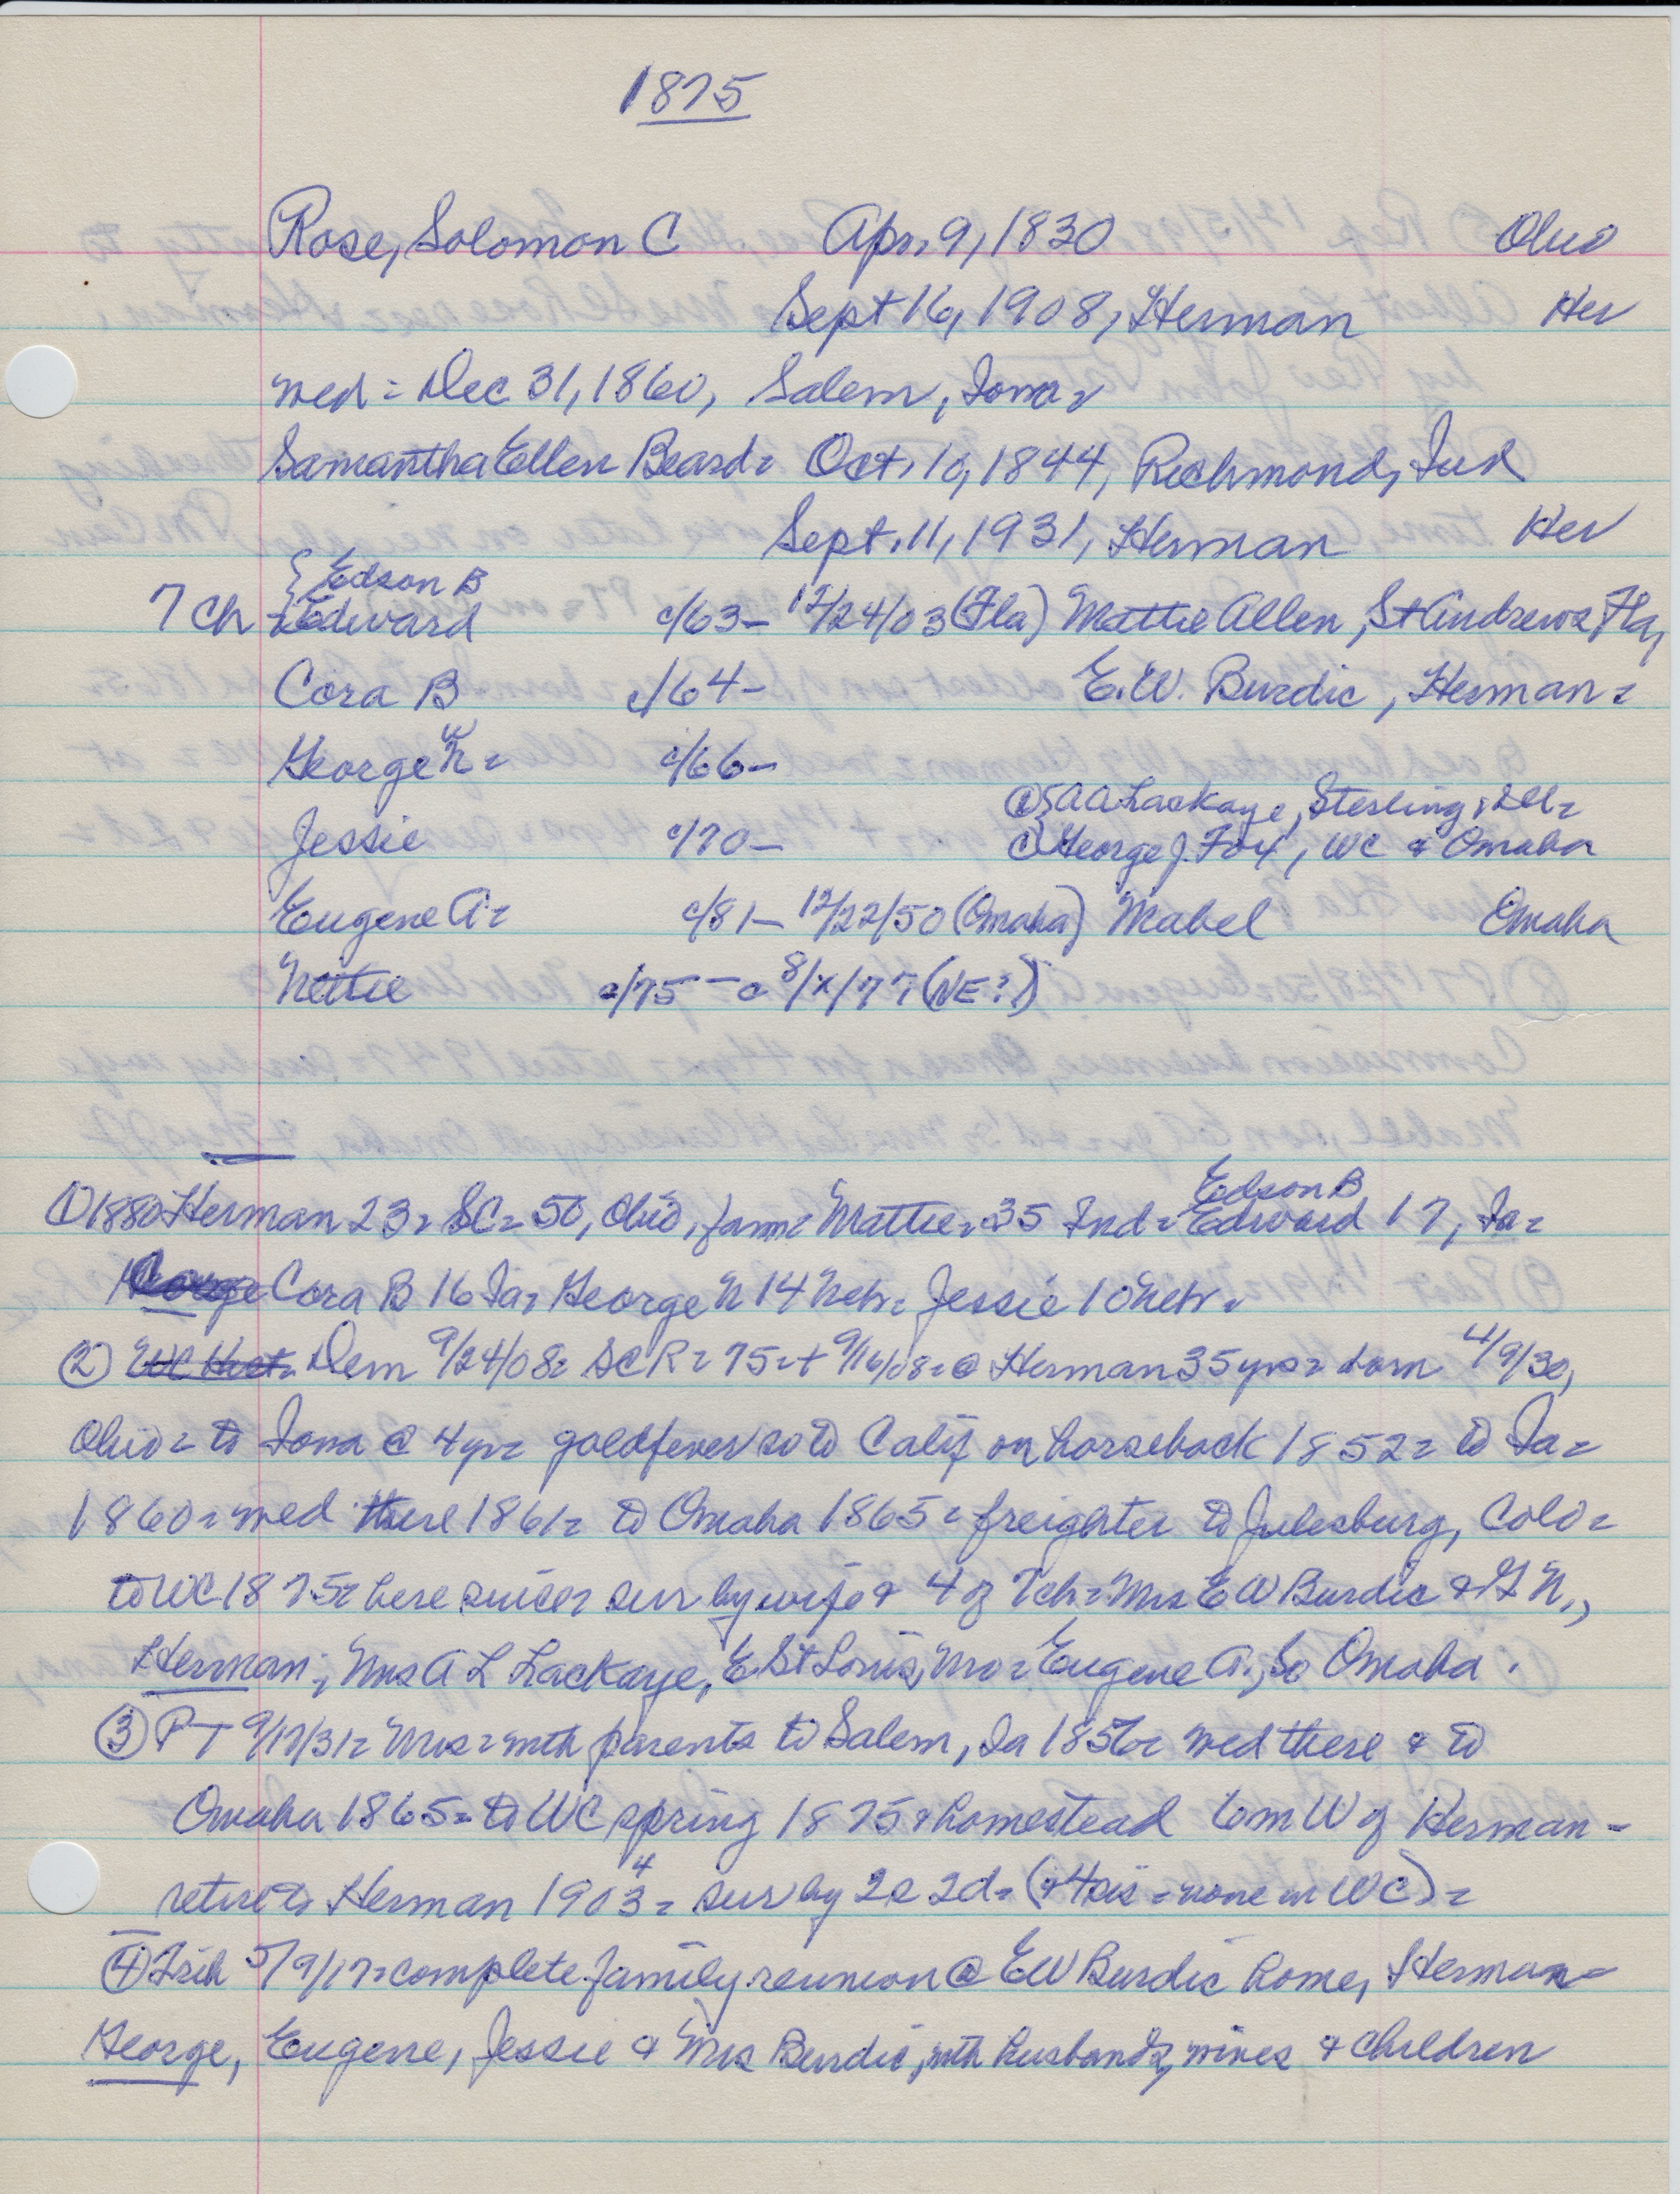 1875
Rose, Solomon C Apr. 9, 1830 Ohio
Sept 16, 1908, Herman Her
med = Dec 31, 1860, Salem, Iowa =
Samantha Ellen Beard = Oct. 10, 1844, Richmond, Ind
Sept. 11, 1931, Herman Her
{ Edson B
7 ch = Edward c/63 - 12/24/03 (Fla) Mattie Allen, St Andrews Fla,
Cora B c/64 - E.W. Burdic, Herman =
W
George N = c/66 -
① { A A Lackaye, Sterling, Ill =
Jessie c/70 - George J. Fox, WC & Omaha
Eugene A = c/81 - 12/22/50 (Omaha) Mabel Omaha
Nettie c/75 - c 8/x/77 (NE?)
Edson B
① 1880 Herman 23 = SC = 50, Ohio, farm = Mattie = 35 Ind = Edward 17, Ia =
Cora B 16 Ia = George N 14 Neb = Jessie 10 Neb =
② Dem 9/24/08 = SCR = 75 = + 9/16/08 = @ Herman 35 yrs = born 4/9/30,
Ohio = to Iowa @ 4 yr = goldfever so to Calif on horseback 1852 = to Ia =
1860 = med there 1861 = to Omaha 1865 = freighter to Julesburg, Colo =
to WC 1875 = here since = sur by wife & 4 of 7 ch = Mrs E W Burdic & G N.,
Herman; Mrs A L Lackaye, E St Louis, Mo = Eugene A., So Omaha.
③ PT 9/17/31 = Mrs = with parents to Salem, Ia 1856 = med there & to
Omaha 1865 = to WC spring 1875 & homestead 6m W of Herman -
4
retire to Herman 1903 = sur by 2s 2d = (& 4 sis = none in WC) =
④ 5/9/17 = complete family reunion @ EW Burdic home, Herman =
George, Eugene, Jessie & Mrs Burdic, with husbands, wives & children